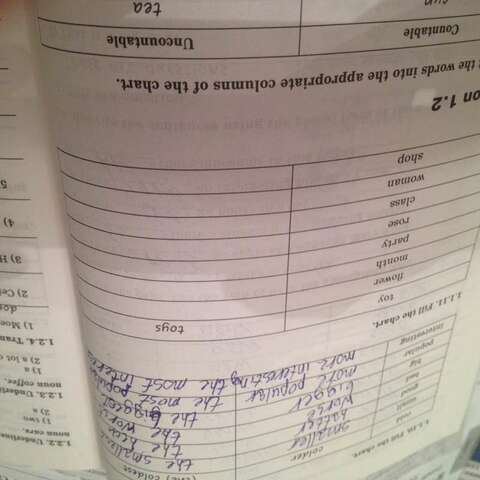 1.1.10. Fill the chart.
cold colder (the) coldest
small smaller the smallest
good better the best
bad worse the worst
big bigger the biggest
popular more popular the most popular
interesting more interesting the most interes
1.1.11. Fill the chart.
toy toys
flower
month
party
rose
class
woman
shop
on 1.2
the words into the appropriate columns of the chart.
Countable Uncountable
tea
1.2.2. Underline
noun cars.
1) two
2) a
1.2.3. Underli
noun coffee.
1) a
2) a lot
1.2.4. Tran
1) Moe
do
2) Ce
3) H
4)
5